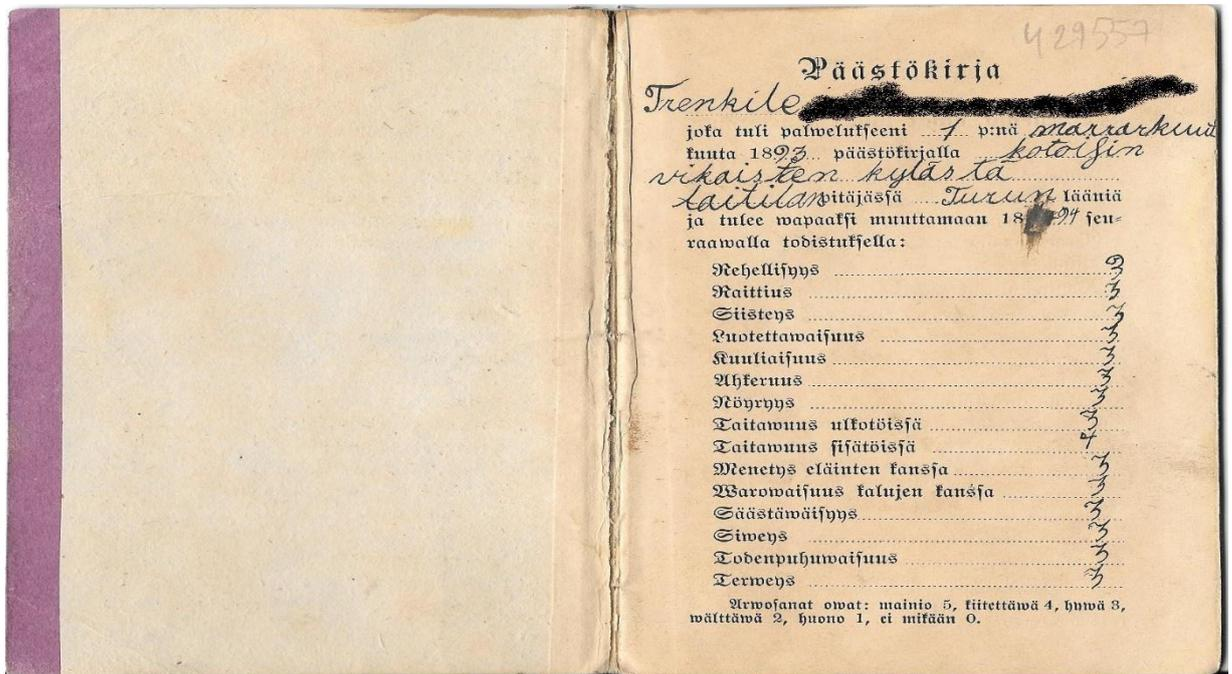 429557
Päästökirja
Trenkile
joka tuli palwelukseeni 1 p:nä marrarkuut
kuuta 1893 päästökirjalla kotoisin
vikaisten kylästä
laitilan pitäjässä Turun lääniä
ja tulee wapaaksi muuttamaan 18 94 seu=
raawalla todistuksella:
Rehellisyys 3
Raittius 3
Siisteys 3
Luotettawaisuus 3
Kuuliaisuus 3
Ahkeruus 3
Nöyryys 3
Taitawuus ulkotöissä 3
Taitawuus sisätöissä 4
Menetys eläinten kanssa 3
Warowaisuus kalujen kanssa 3
Säästäwäisyys 3
Siweys 3
Todenpuhuwaisuus 3
Terweys 3
Arwosanat owat: mainio 5, kiitettäwä 4, hywä 3,
wälttäwä 2, huono 1, ei mikään 0.